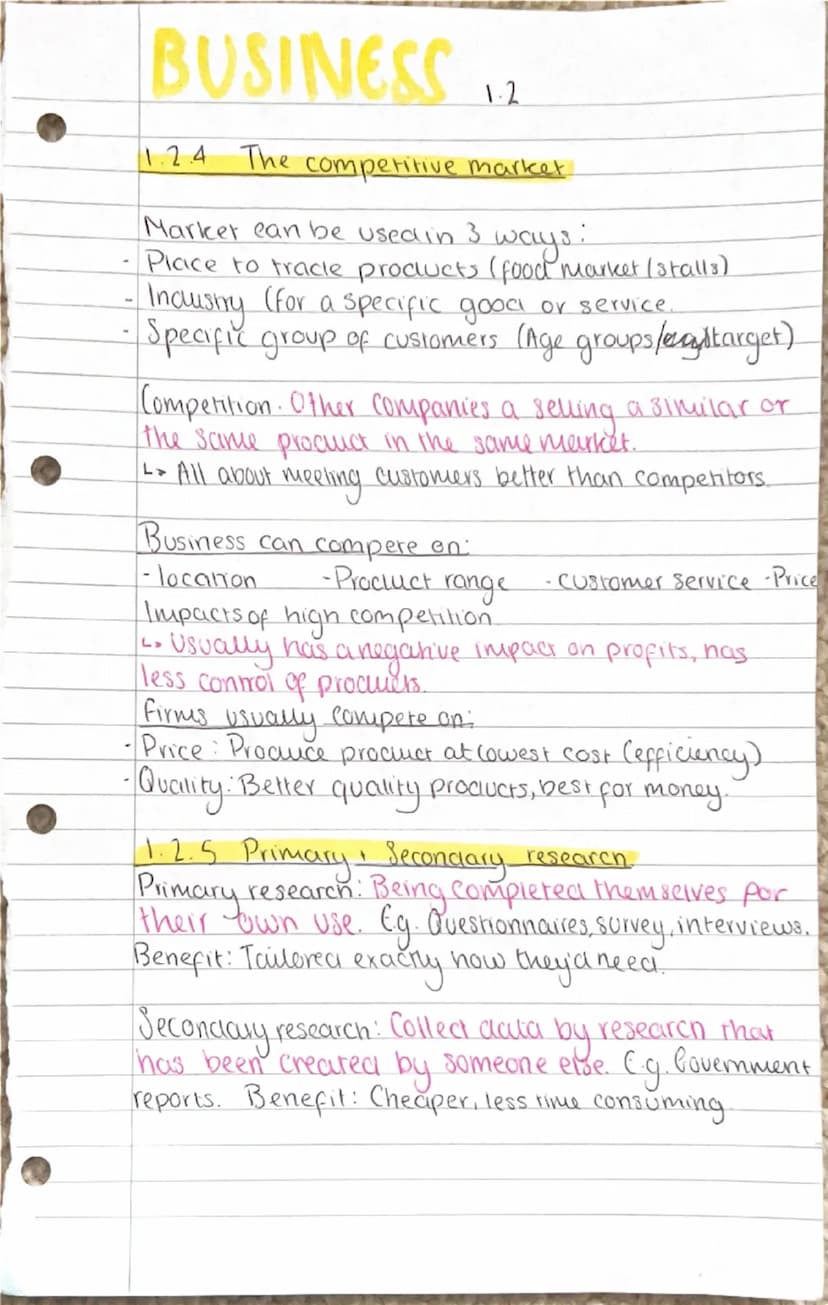 BUSINESS 1.2
1.2.4 The competitive market
Market can be used in 3 ways:
- Place to trade products (food market/stalls)
- Industry (for a specific good or service.
- Specific group of customers (Age groups/target)
Competition. Other companies a selling a similar or
the same product in the same market.
↳ All about meeting customers better than competitors.
Business can compete on:
- location - Product range - customer service - Price
Impacts of high competition
↳ Usually has a negative impact on profits, has
less control of products.
Firms usually compete on:
- Price: Produce product at lowest cost (efficiency)
- Quality: Better quality products, best for money.
1.2.5 Primary + Secondary research
Primary research: Being completed themselves for
their own use. E.g. Questionnaires, survey, interviews.
Benefit: Tailored exactly how they'd need.
Secondary research: Collect data by research that
has been created by someone else. E.g. Government
reports. Benefit: Cheaper, less time consuming.